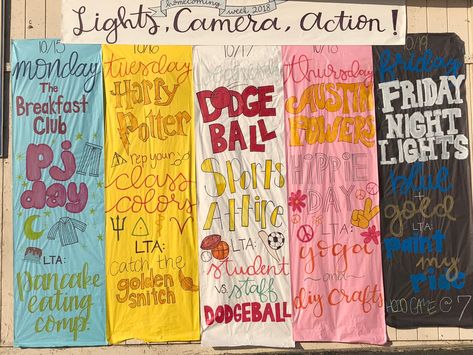 homecoming week 2018
Lights, Camera, Action!
10/15
monday
The
Breakfast
Club
PJ
day
LTA:
Pancake
eating
comp.
10/16
tuesday
Harry
Potter
rep your
class
colors
LTA:
catch the
golden
snitch
10/17
wednesday
DODGE
BALL
Sports
Attire
LTA:
student
vs. staff
DODGEBALL
10/18
thursday
AUSTIN
POWERS
HIPPIE
DAY
LTA:
gogo
and
diy crafts
10/19
friday
FRIDAY
NIGHT
LIGHTS
blue +
gold
LTA:
paint my
ride
HOCO GAME @ 7